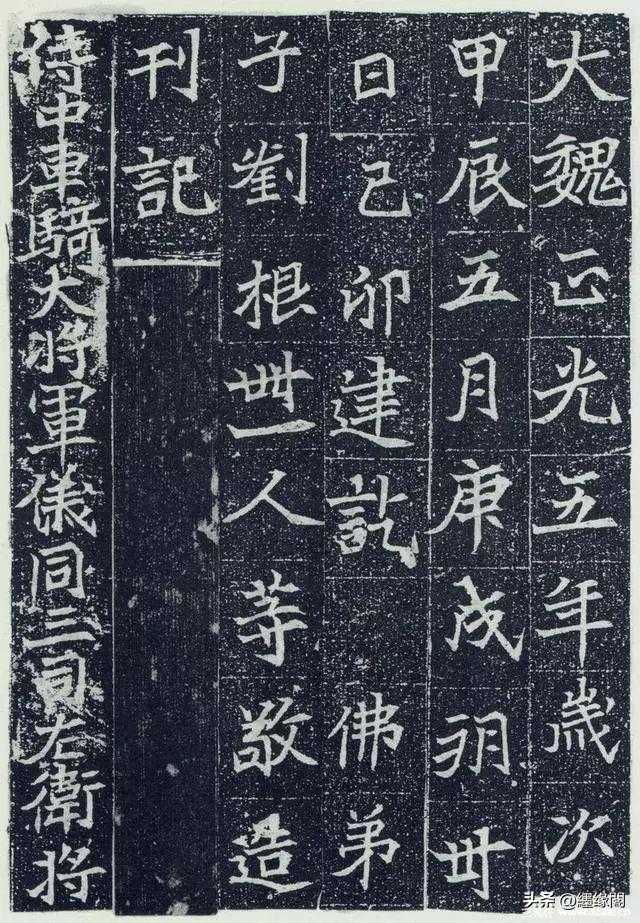 大魏正光五年歲次
甲辰五月庚戌朔卅
日己卯建訖 佛弟
子劉根卌一人等敬造
刊記
侍中車騎大將軍儀同三司右衛將
头条